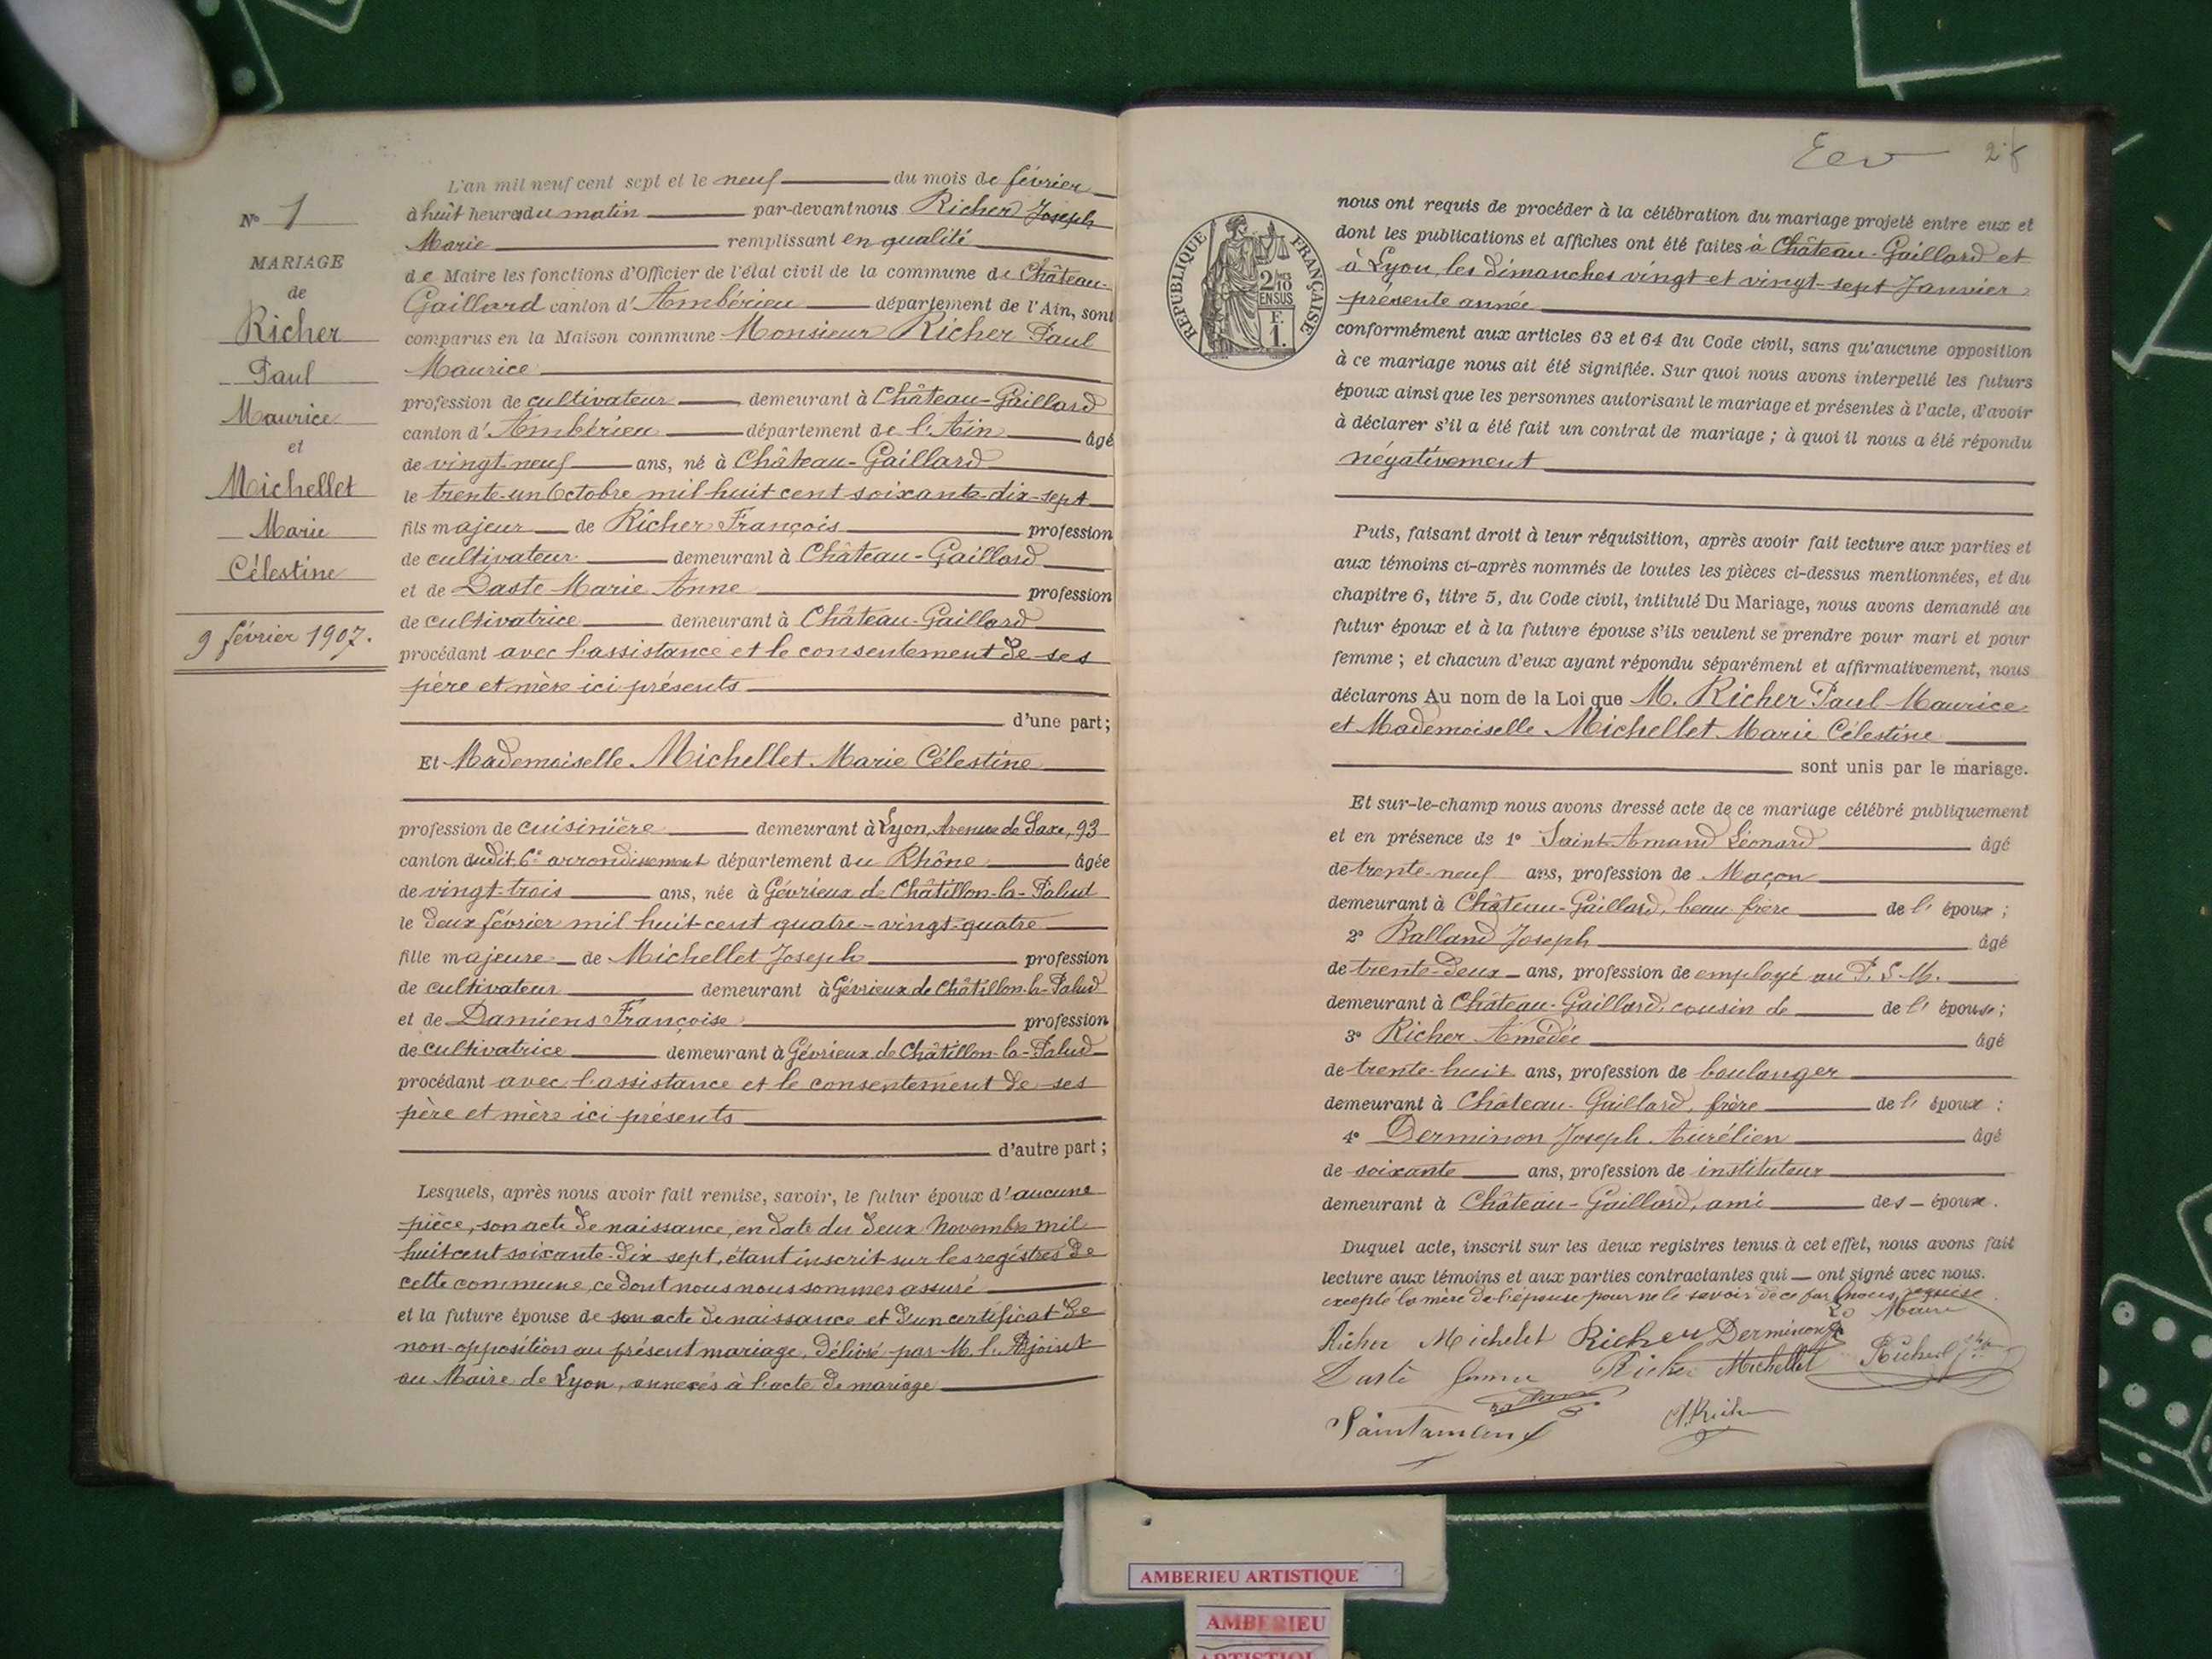 N° 1
MARIAGE
de
Richer
Paul
Maurice
et
Michellet
Marie
Célestine
9 février 1907.
L'an mil neuf cent sept et le neuf du mois de février
à huit heures du matin par-devant nous Richer Joseph
Marie remplissant en qualité
de Maire les fonctions d'Officier de l'état civil de la commune de Château-
Gaillard canton d'Ambérieu département de l'Ain, sont
comparus en la Maison commune Monsieur Richer Paul
Maurice
profession de cultivateur demeurant à Château-Gaillard
canton d'Ambérieu département de l'Ain âgé
de vingt-neuf ans, né à Château-Gaillard
le trente-un Octobre mil huit cent soixante-dix-sept
fils majeur de Richer François profession
de cultivateur demeurant à Château-Gaillard
et de Daste Marie Anne profession
de cultivatrice demeurant à Château-Gaillard
procédant avec l'assistance et le consentement de ses
père et mère ici présents
d'une part;
Et Mademoiselle Michellet Marie Célestine
profession de cuisinière demeurant à Lyon, Avenue de Saxe, 93
canton dudit 6e arrondissement département du Rhône âgée
de vingt-trois ans, née à Gévrieux de Châtillon-la-Palud
le deux février mil huit-cent quatre-vingt-quatre
fille majeure de Michellet Joseph profession
de cultivateur demeurant à Gévrieux de Châtillon-la-Palud
et de Damiens Françoise profession
de cultivatrice demeurant à Gévrieux de Châtillon-la-Palud
procédant avec l'assistance et le consentement de ses
père et mère ici présents
d'autre part;
Lesquels, après nous avoir fait remise, savoir, le futur époux d'aucune
pièce, son acte de naissance, en date du deux Novembre mil
huit cent soixante-dix sept, étant inscrit sur les registres de
cette commune, ce dont nous nous sommes assuré
et la future épouse de son acte de naissance et d'un certificat de
non-opposition au présent mariage, délivré par M. l'Adjoint
au Maire de Lyon, annexés à l'acte de mariage
RÉPUBLIQUE FRANÇAISE
2/10
EN SUS
F.
1.
nous ont requis de procéder à la célébration du mariage projeté entre eux et
dont les publications et affiches ont été faites à Château-Gaillard et
à Lyon, les dimanches vingt et vingt-sept Janvier
présente année
conformément aux articles 63 et 64 du Code civil, sans qu'aucune opposition
à ce mariage nous ait été signifiée. Sur quoi nous avons interpellé les futurs
époux ainsi que les personnes autorisant le mariage et présentes à l'acte, d'avoir
à déclarer s'il a été fait un contrat de mariage ; à quoi il nous a été répondu
négativement
Puis, faisant droit à leur réquisition, après avoir fait lecture aux parties et
aux témoins ci-après nommés de toutes les pièces ci-dessus mentionnées, et du
chapitre 6, titre 5, du Code civil, intitulé Du Mariage, nous avons demandé au
futur époux et à la future épouse s'ils veulent se prendre pour mari et pour
femme ; et chacun d'eux ayant répondu séparément et affirmativement, nous
déclarons Au nom de la Loi que M. Richer Paul Maurice
et Mademoiselle Michellet Marie Célestine
sont unis par le mariage.
Et sur-le-champ nous avons dressé acte de ce mariage célébré publiquement
et en présence de 1° Saint-Amand Léonard âgé
de trente-neuf ans, profession de Maçon
demeurant à Château-Gaillard, beau frère de l'époux ;
2° Balland Joseph âgé
de trente-deux ans, profession de employé au P. L. M.
demeurant à Château-Gaillard, cousin de de l'épouse ;
3° Richer Amédée âgé
de trente-huit ans, profession de boulanger
demeurant à Château-Gaillard, frère de l'époux :
4° Derminon Joseph Aurélien âgé
de soixante ans, profession de instituteur
demeurant à Château-Gaillard, ami des époux.
Duquel acte, inscrit sur les deux registres tenus à cet effet, nous avons fait
lecture aux témoins et aux parties contractantes qui ont signé avec nous.
excepté la mère de l'épouse pour ne le savoir de ce par nous requise
Le Maire
Richer Michelet Richer Derminon
Daste femme Richer Michellet Richer
Saintamand A. Richer
AMBERIEU ARTISTIQUE
AMBERIEU
ARTISTIQU